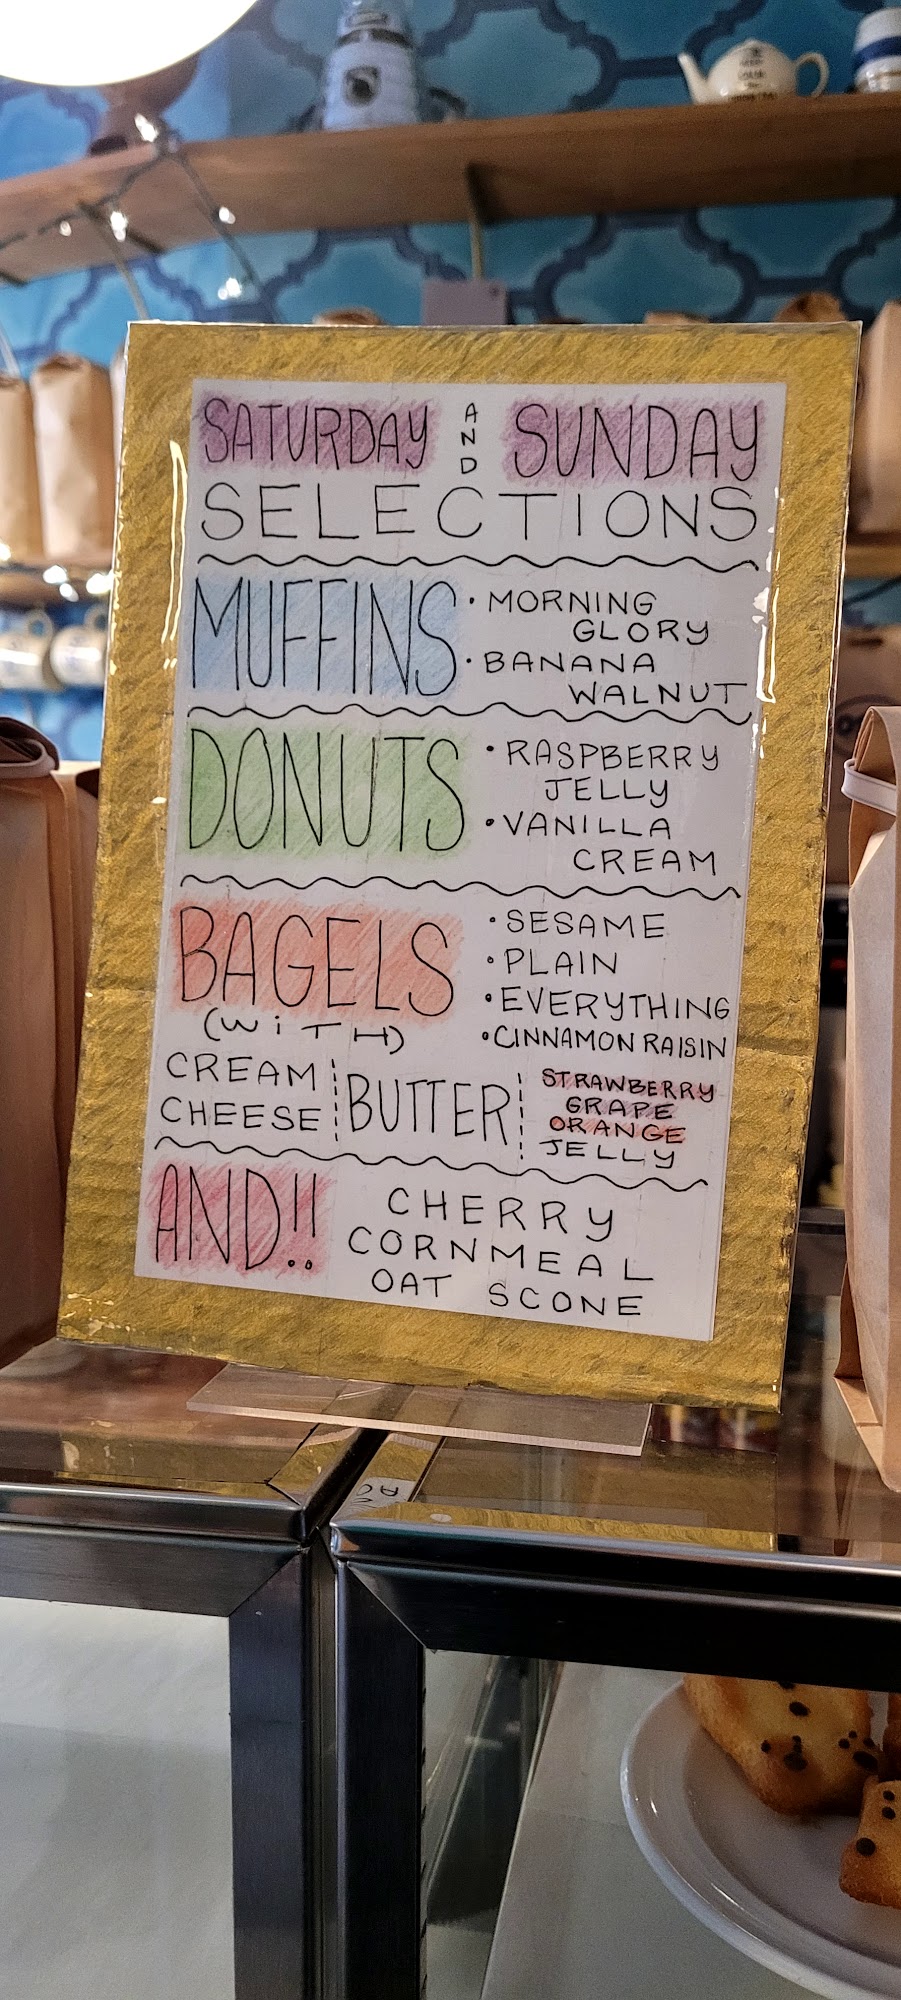 SATURDAY AND SUNDAY
SELECTIONS
MUFFINS
• MORNING
GLORY
• BANANA
WALNUT
DONUTS
• RASPBERRY
JELLY
• VANILLA
CREAM
BAGELS
(WiTH)
• SESAME
• PLAIN
• EVERYTHING
• CINNAMON RAISIN
CREAM
CHEESE
BUTTER
STRAWBERRY
GRAPE
ORANGE
JELLY
AND!!
CHERRY
CORNMEAL
OAT SCONE